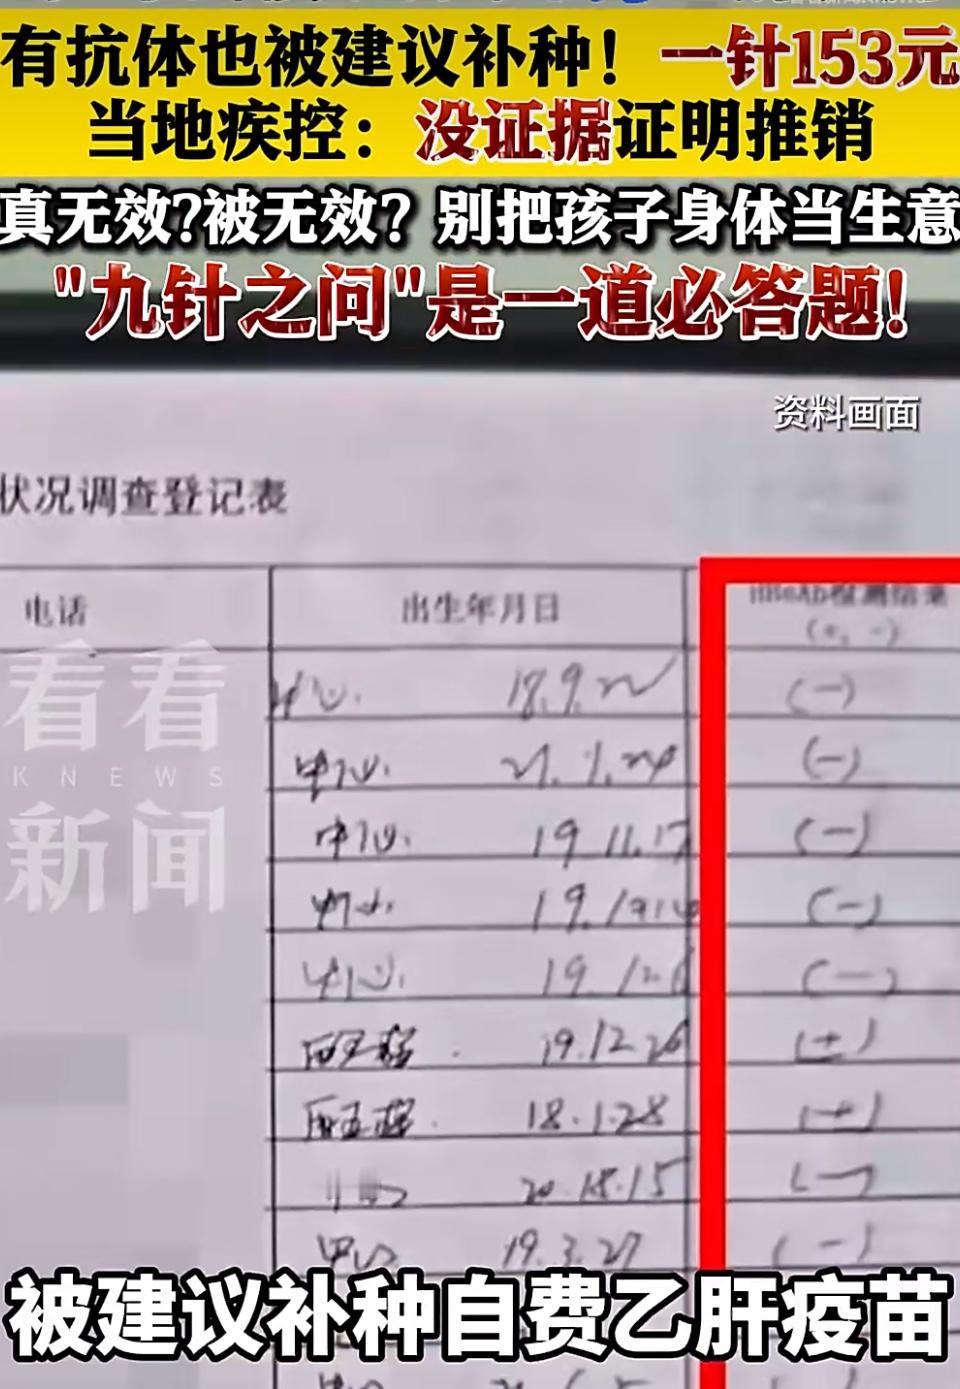 有抗体也被建议补种！一针153元
当地疾控：没证据证明推销
真无效?被无效？别把孩子身体当生意
"九针之问"是一道必答题!
资料画面
状况调查登记表
电话 出生年月日 HBsAb检测结果
(+, -)
看看
KNEWS
新闻
中心. 18.9.22 (-)
中心. (-)
中心. 19.11.17 (-)
(-)
中心. (-)
19.12.26 (+)
18.1.28 (+)
(-)
中心 19.3.27 (-)
被建议补种自费乙肝疫苗